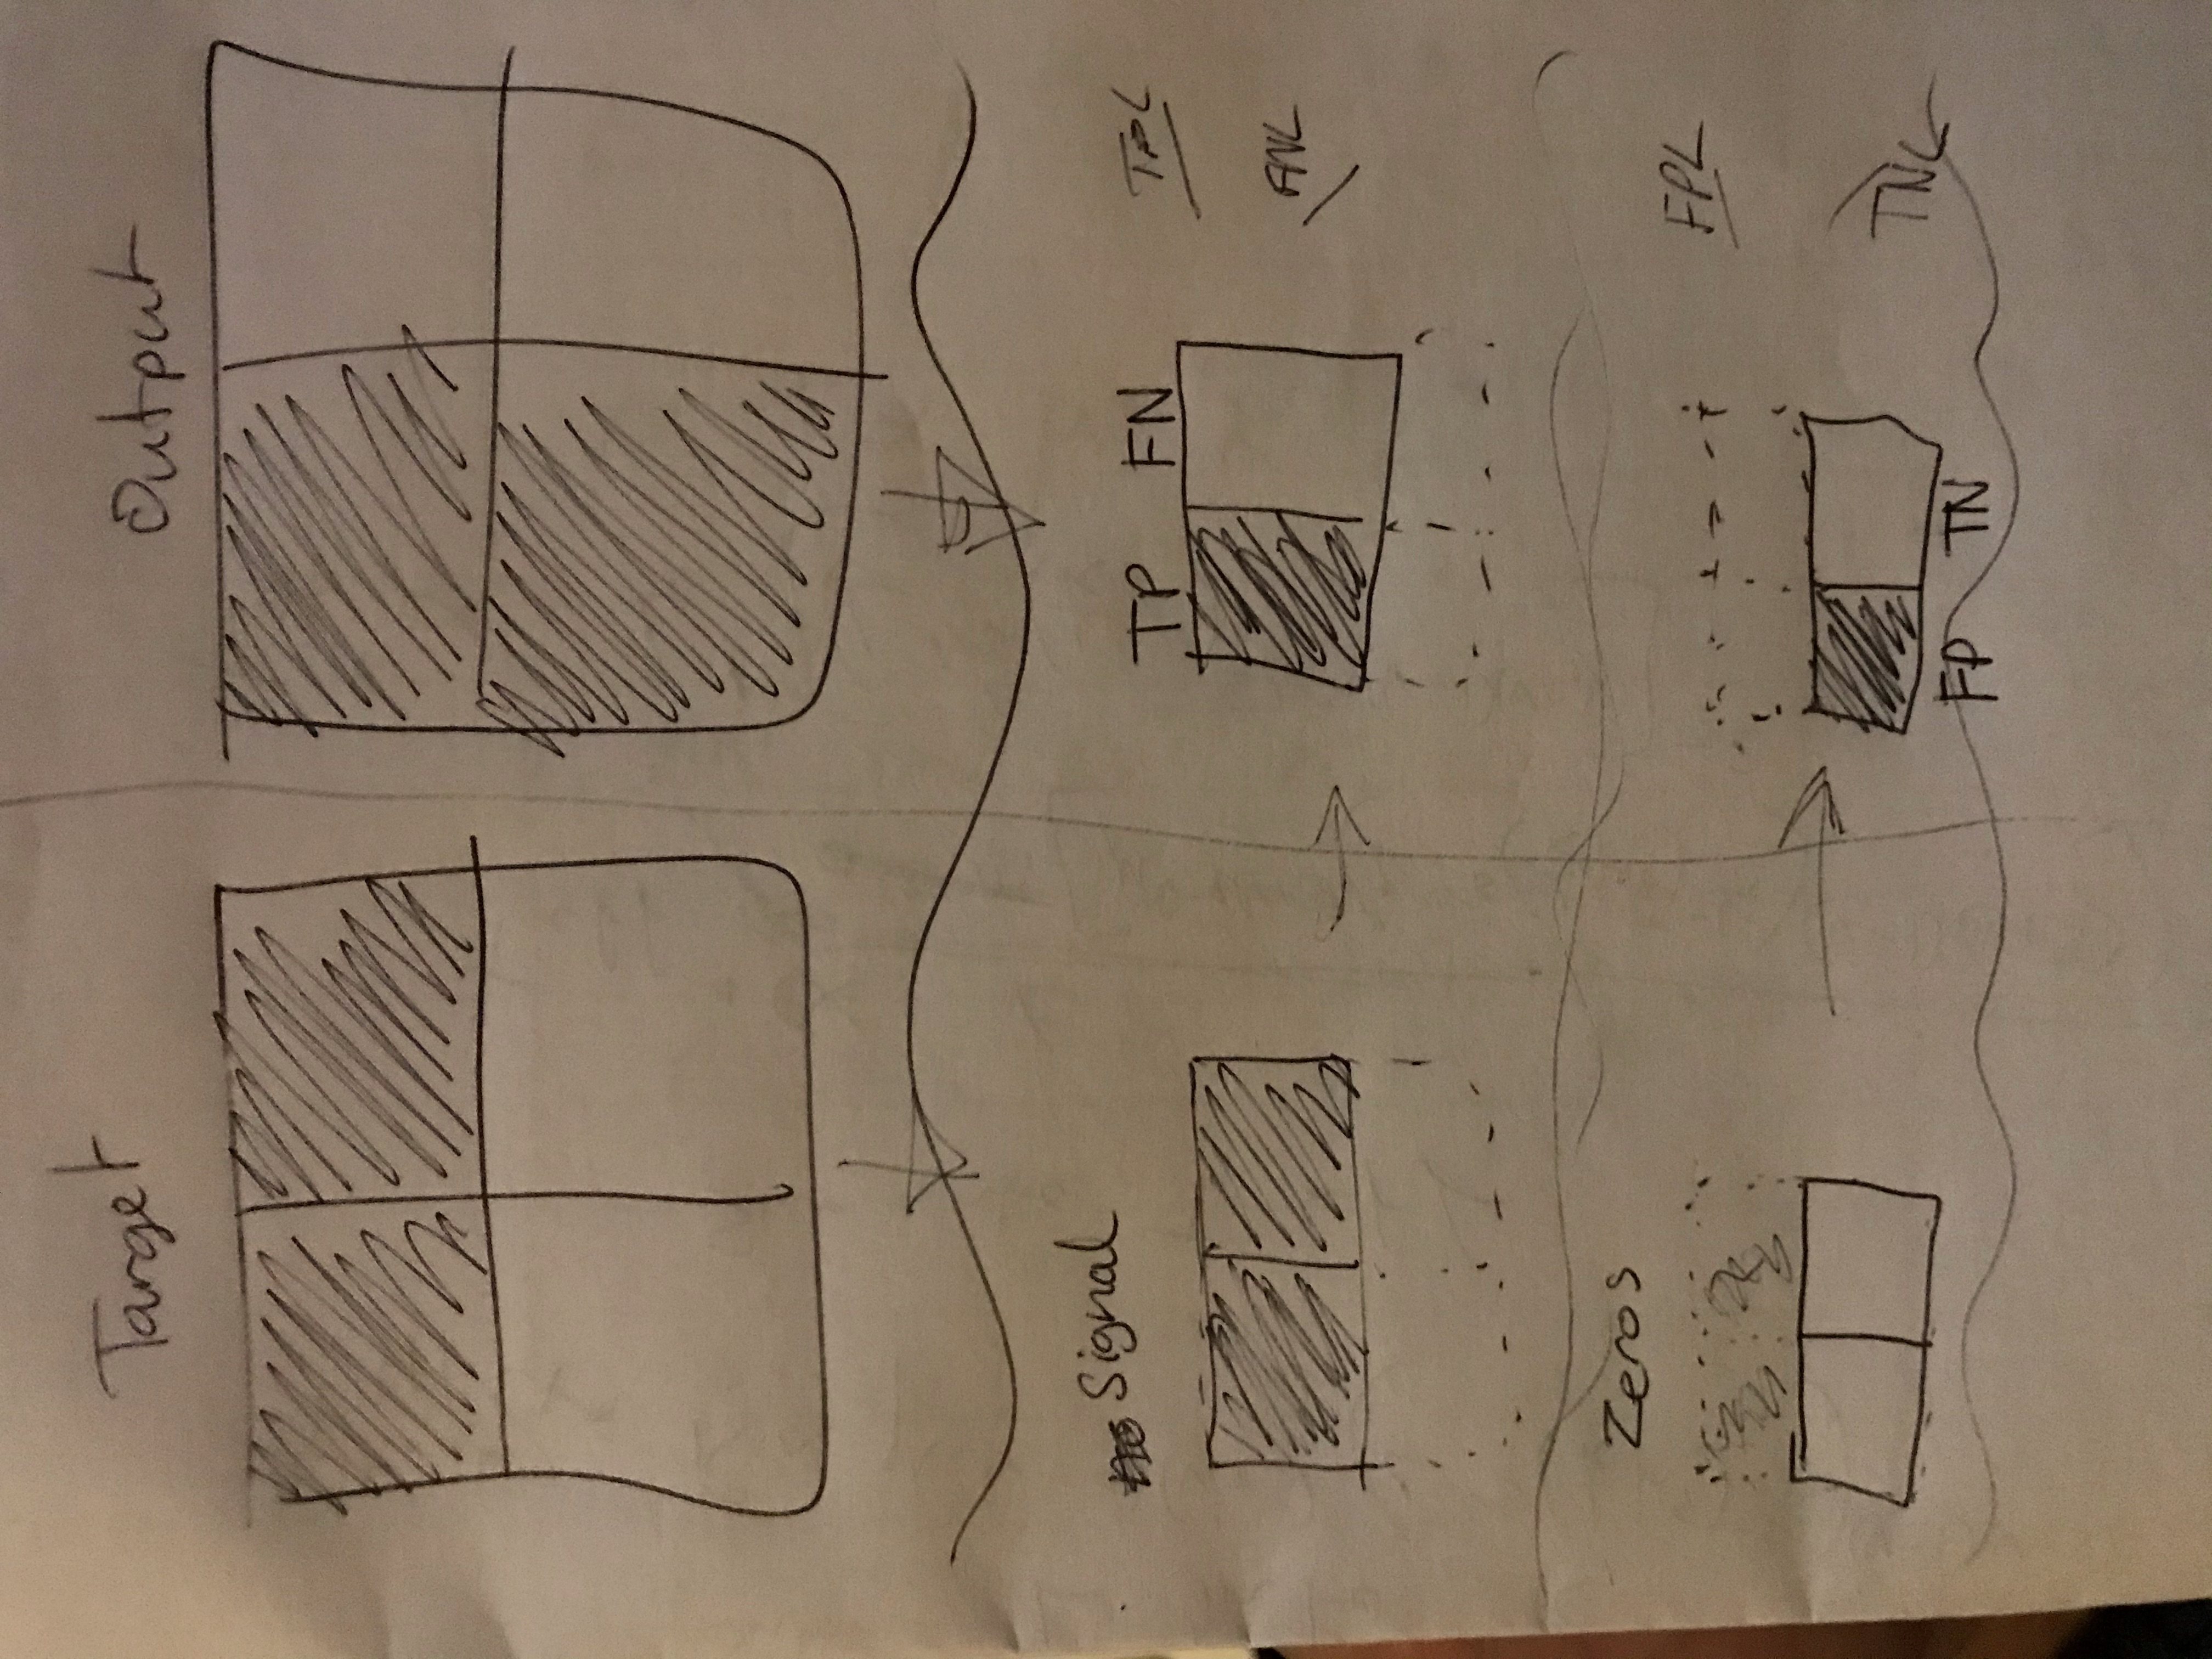 Target Output
Signal
TP FN
TPL
FNL
Zeros
FPL
TNL
FP TN